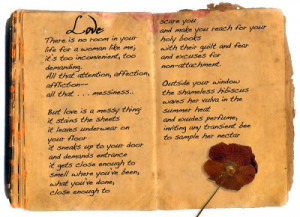 Love
There is no room in your
life for a woman like me,
it's too inconvenient, too
demanding.
All that attention, affection,
affliction—
all that . . . messiness.
But love is a messy thing
it stains the sheets
it leaves underwear on
your floor
it sneaks up to your door
and demands entrance
it gets close enough to
smell where you've been,
what you've done,
close enough to
scare you
and make you reach for your
holy books
with their guilt and fear
and excuses for
non-attachment.
Outside your window
the shameless hibiscus
waves her vulva in the
summer heat
and exudes perfume,
inviting any transient bee
to sample her nectar